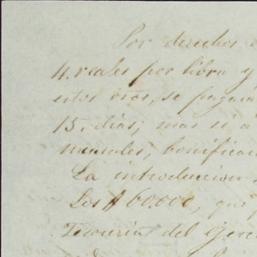 Por derechos d
4. reales por libra y
estos rios, se pagará
15. dias; mas si á
mensuales, bonificac
La introduccion
Los $60.000, que
Tesoreria del Gene